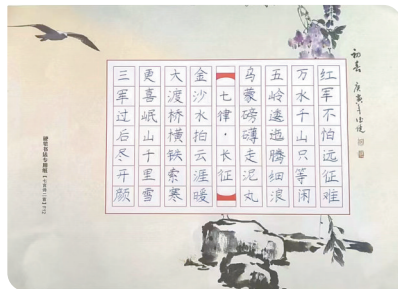 红军不怕远征难
万水千山只等闲
五岭逶迤腾细浪
乌蒙磅礴走泥丸
七律·长征
金沙水拍云涯暖
大渡桥横铁索寒
更喜岷山千里雪
三军过后尽开颜
初春
硬笔书法专用纸